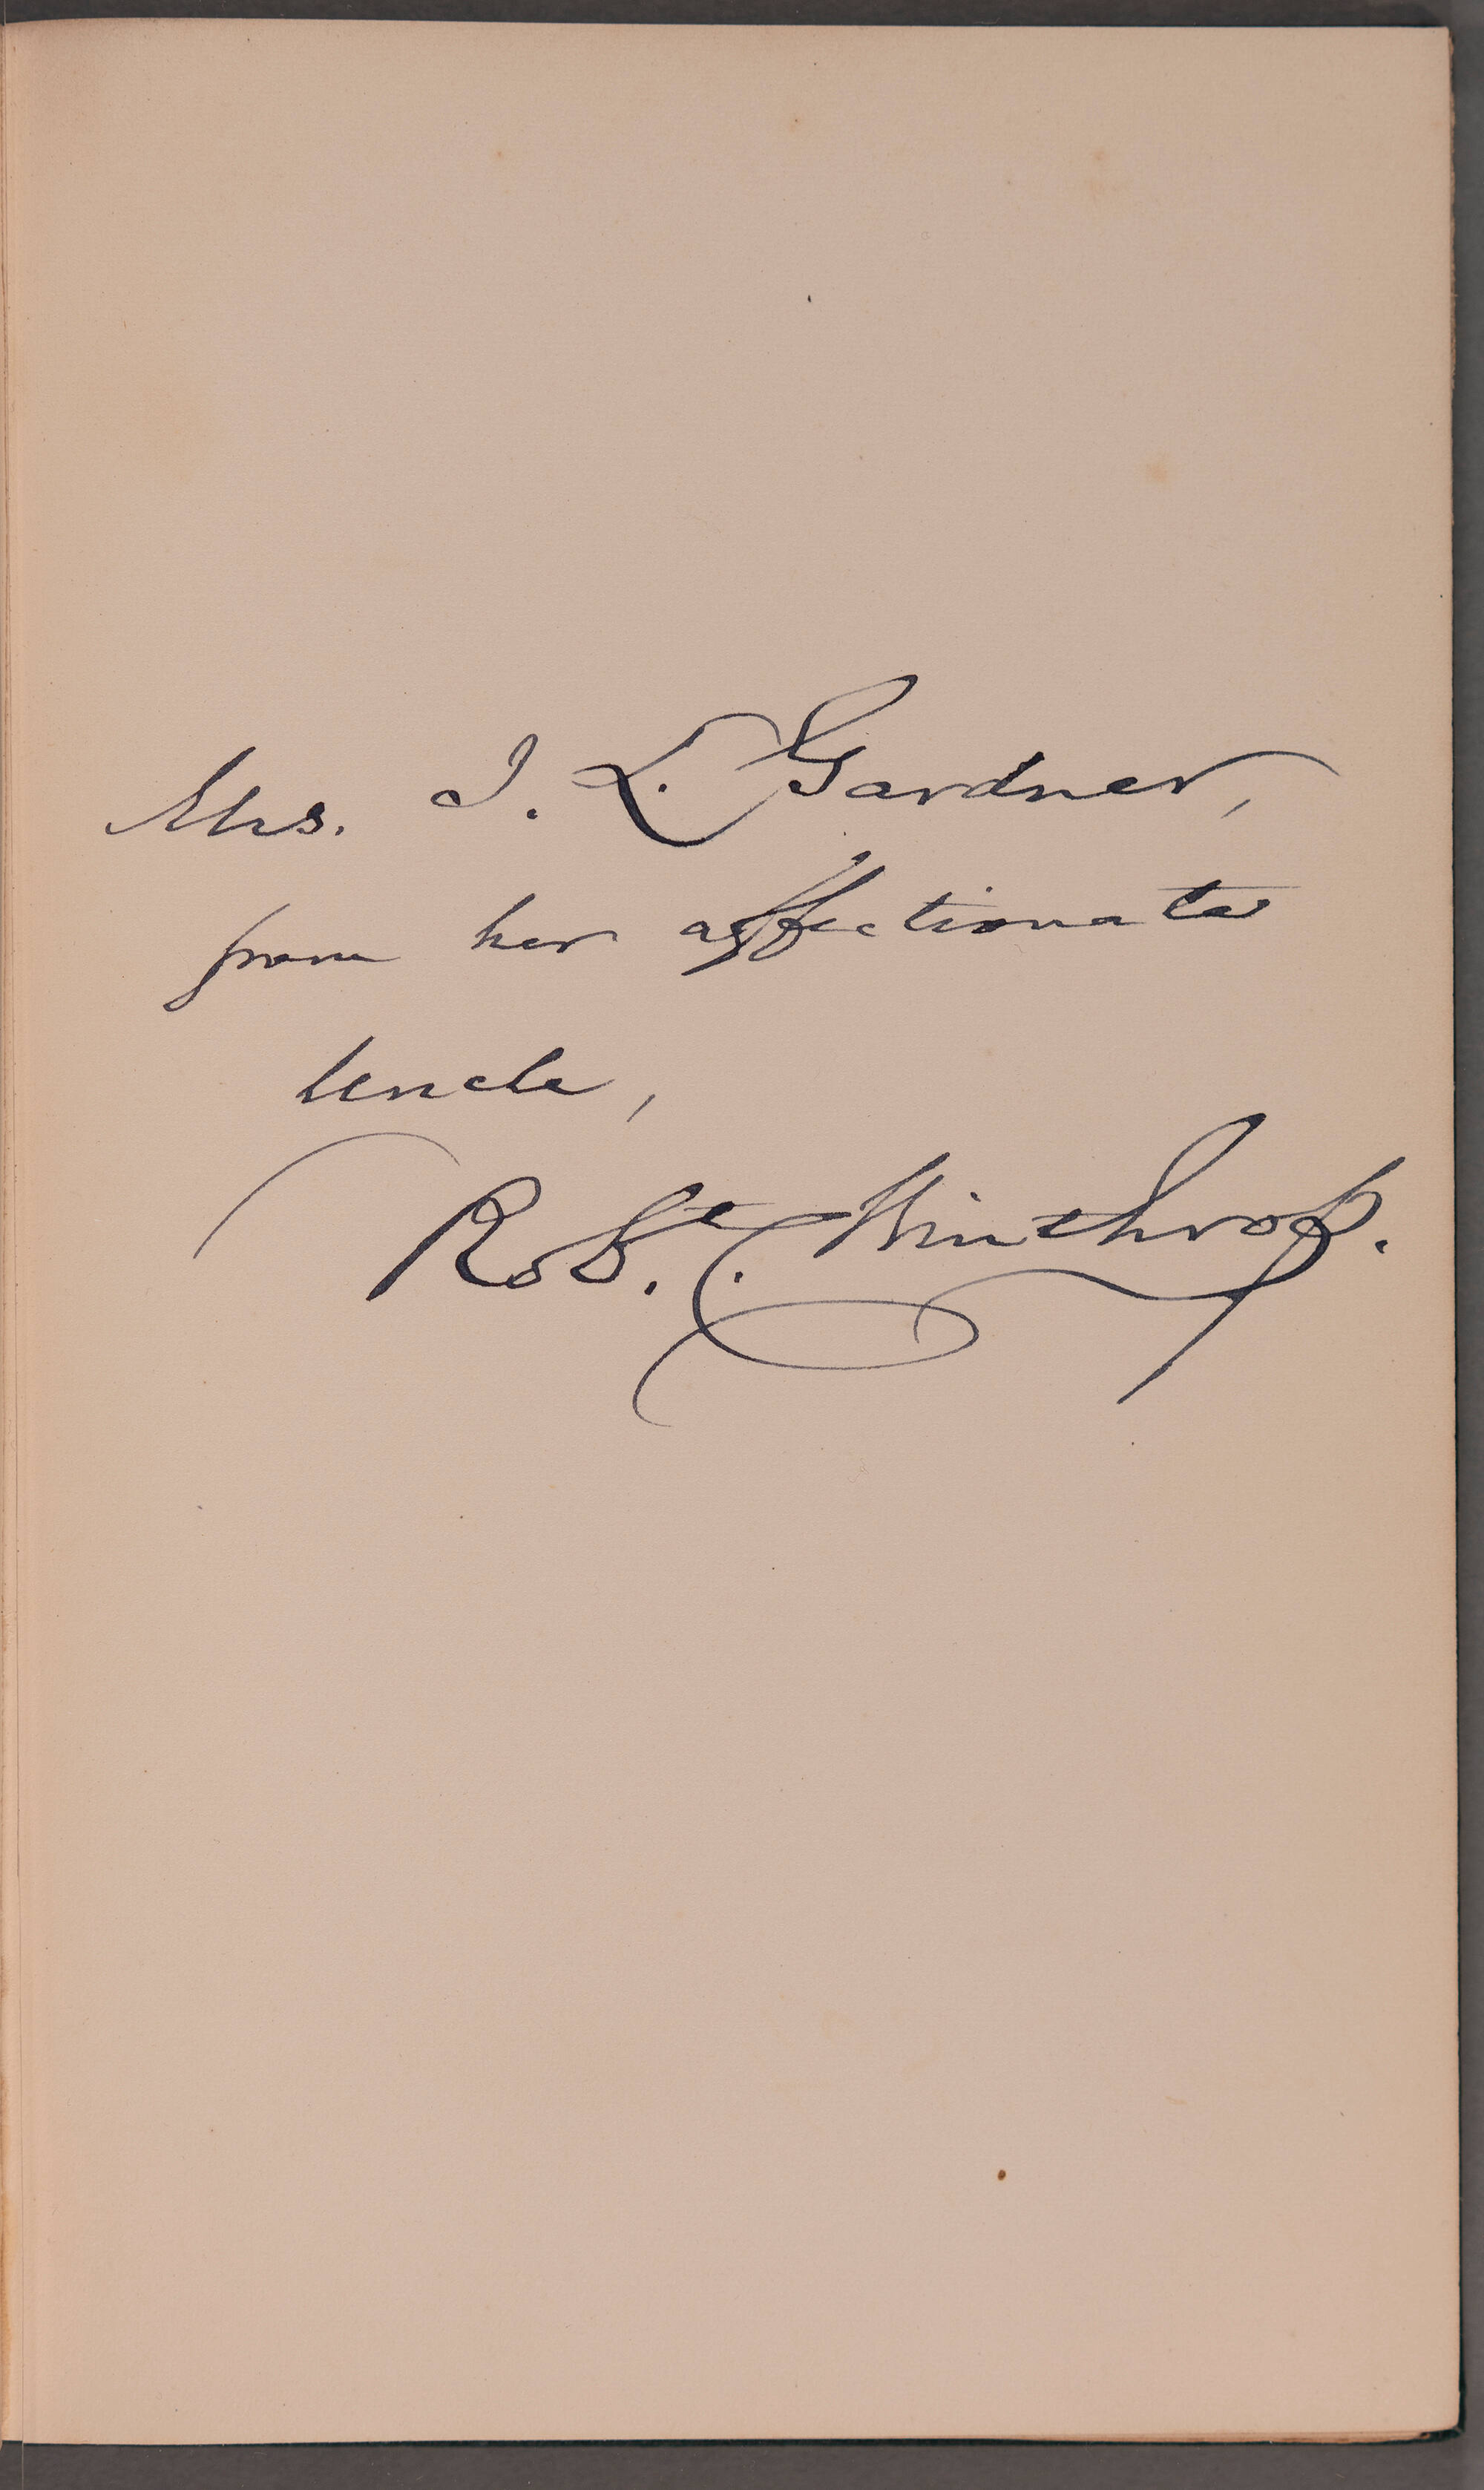 Mrs. J. L. Gardner,
from her affectionate
Uncle,
Robt. C. Winthrop.